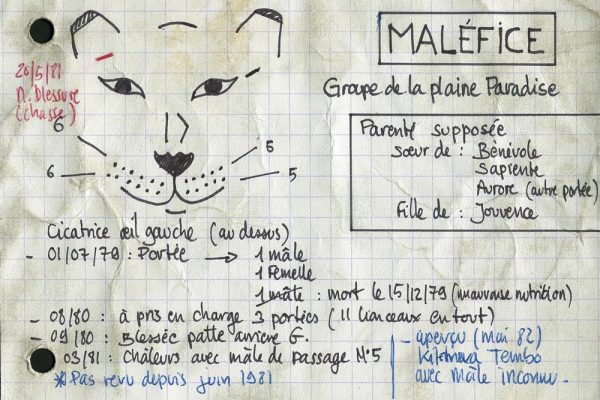 MALÉFICE
Groupe de la plaine Paradise
20/5/81
n. blessure
(chasse)
6
6
5
5
Parenté supposée
sœur de : Bénévole
Sapiente
Aurore (autre portée)
Fille de : Jouvence
Cicatrice œil gauche (au dessus)
- 01/07/79 : Portée → 1 mâle
1 Femelle
1 mâle : mort le 15/12/79 (mauvaise nutrition)
- 08/80 : à pris en charge 3 portées (11 lionceaux en tout)
- 09/80 : Blessée patte arrière G.
03/81 : Châleurs avec mâle de passage N°5
* Pas revu depuis juin 1981
- aperçu (mai 82)
Kitchwa Tembo
avec mâle inconnu -